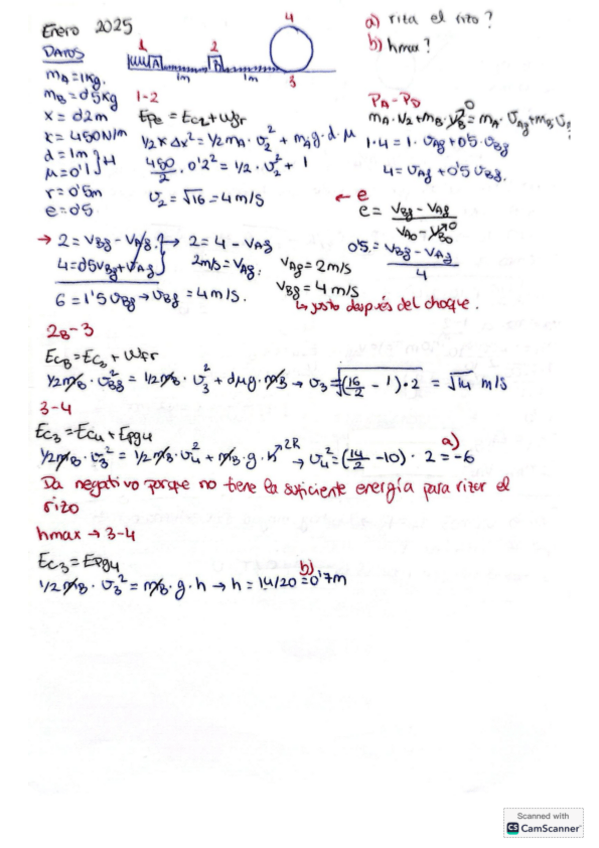 Enero 2025
a) riza el rizo?
b) hmax?
DATOS
1 2 4
A B
1m 1m 3
mA = 1Kg.
mB = 0'5Kg
x = 0'2m
K = 450N/m
d = 1m
μ = 0'1
r = 0'5m
e = 0'5
1-2
Epe = Ec2 + Wfr
1/2 K Δx² = 1/2 mA · v2² + mA g · d · μ
450/2 · 0'2² = 1/2 · v2² + 1
v2 = √16 = 4 m/S
PA - PD
mA · v2 + mB · vB⁰ = mA · vAf + mB · vf
1·4 = 1 · vAf + 0'5 · vBf
4 = vAf + 0'5 vBf.
← e
e = (vBf - vAf) / (vA0 - vB0⁰)
0'5 = (vBf - vAf) / 4
→ 2 = vBf - vAf → 2 = 4 - vAf
4 = 0'5vBf + vAf 2m/s = vAf.
6 = 1'5 vBf → vBf = 4m/S.
vAf = 2m/s
vBf = 4 m/s
↳ justo después del choque.
2B - 3
EcB = Ec3 + Wfr
1/2 mB · vBf² = 1/2 mB · v3² + dμg · mB → v3 = √((16/2 - 1) · 2) = √14 m/S
3-4
Ec3 = Ec4 + Epg4
1/2 mB · v3² = 1/2 mB · v4² + mB · g · h 2R → v4² = (14/2 - 10) · 2 = -6 a)
Da negativo porque no tiene la suficiente energía para rizar el
rizo
hmax → 3-4
Ec3 = Epg4
1/2 mB · v3² = mB · g · h → h = 14/20 = 0'7m b)
Scanned with
CS CamScanner